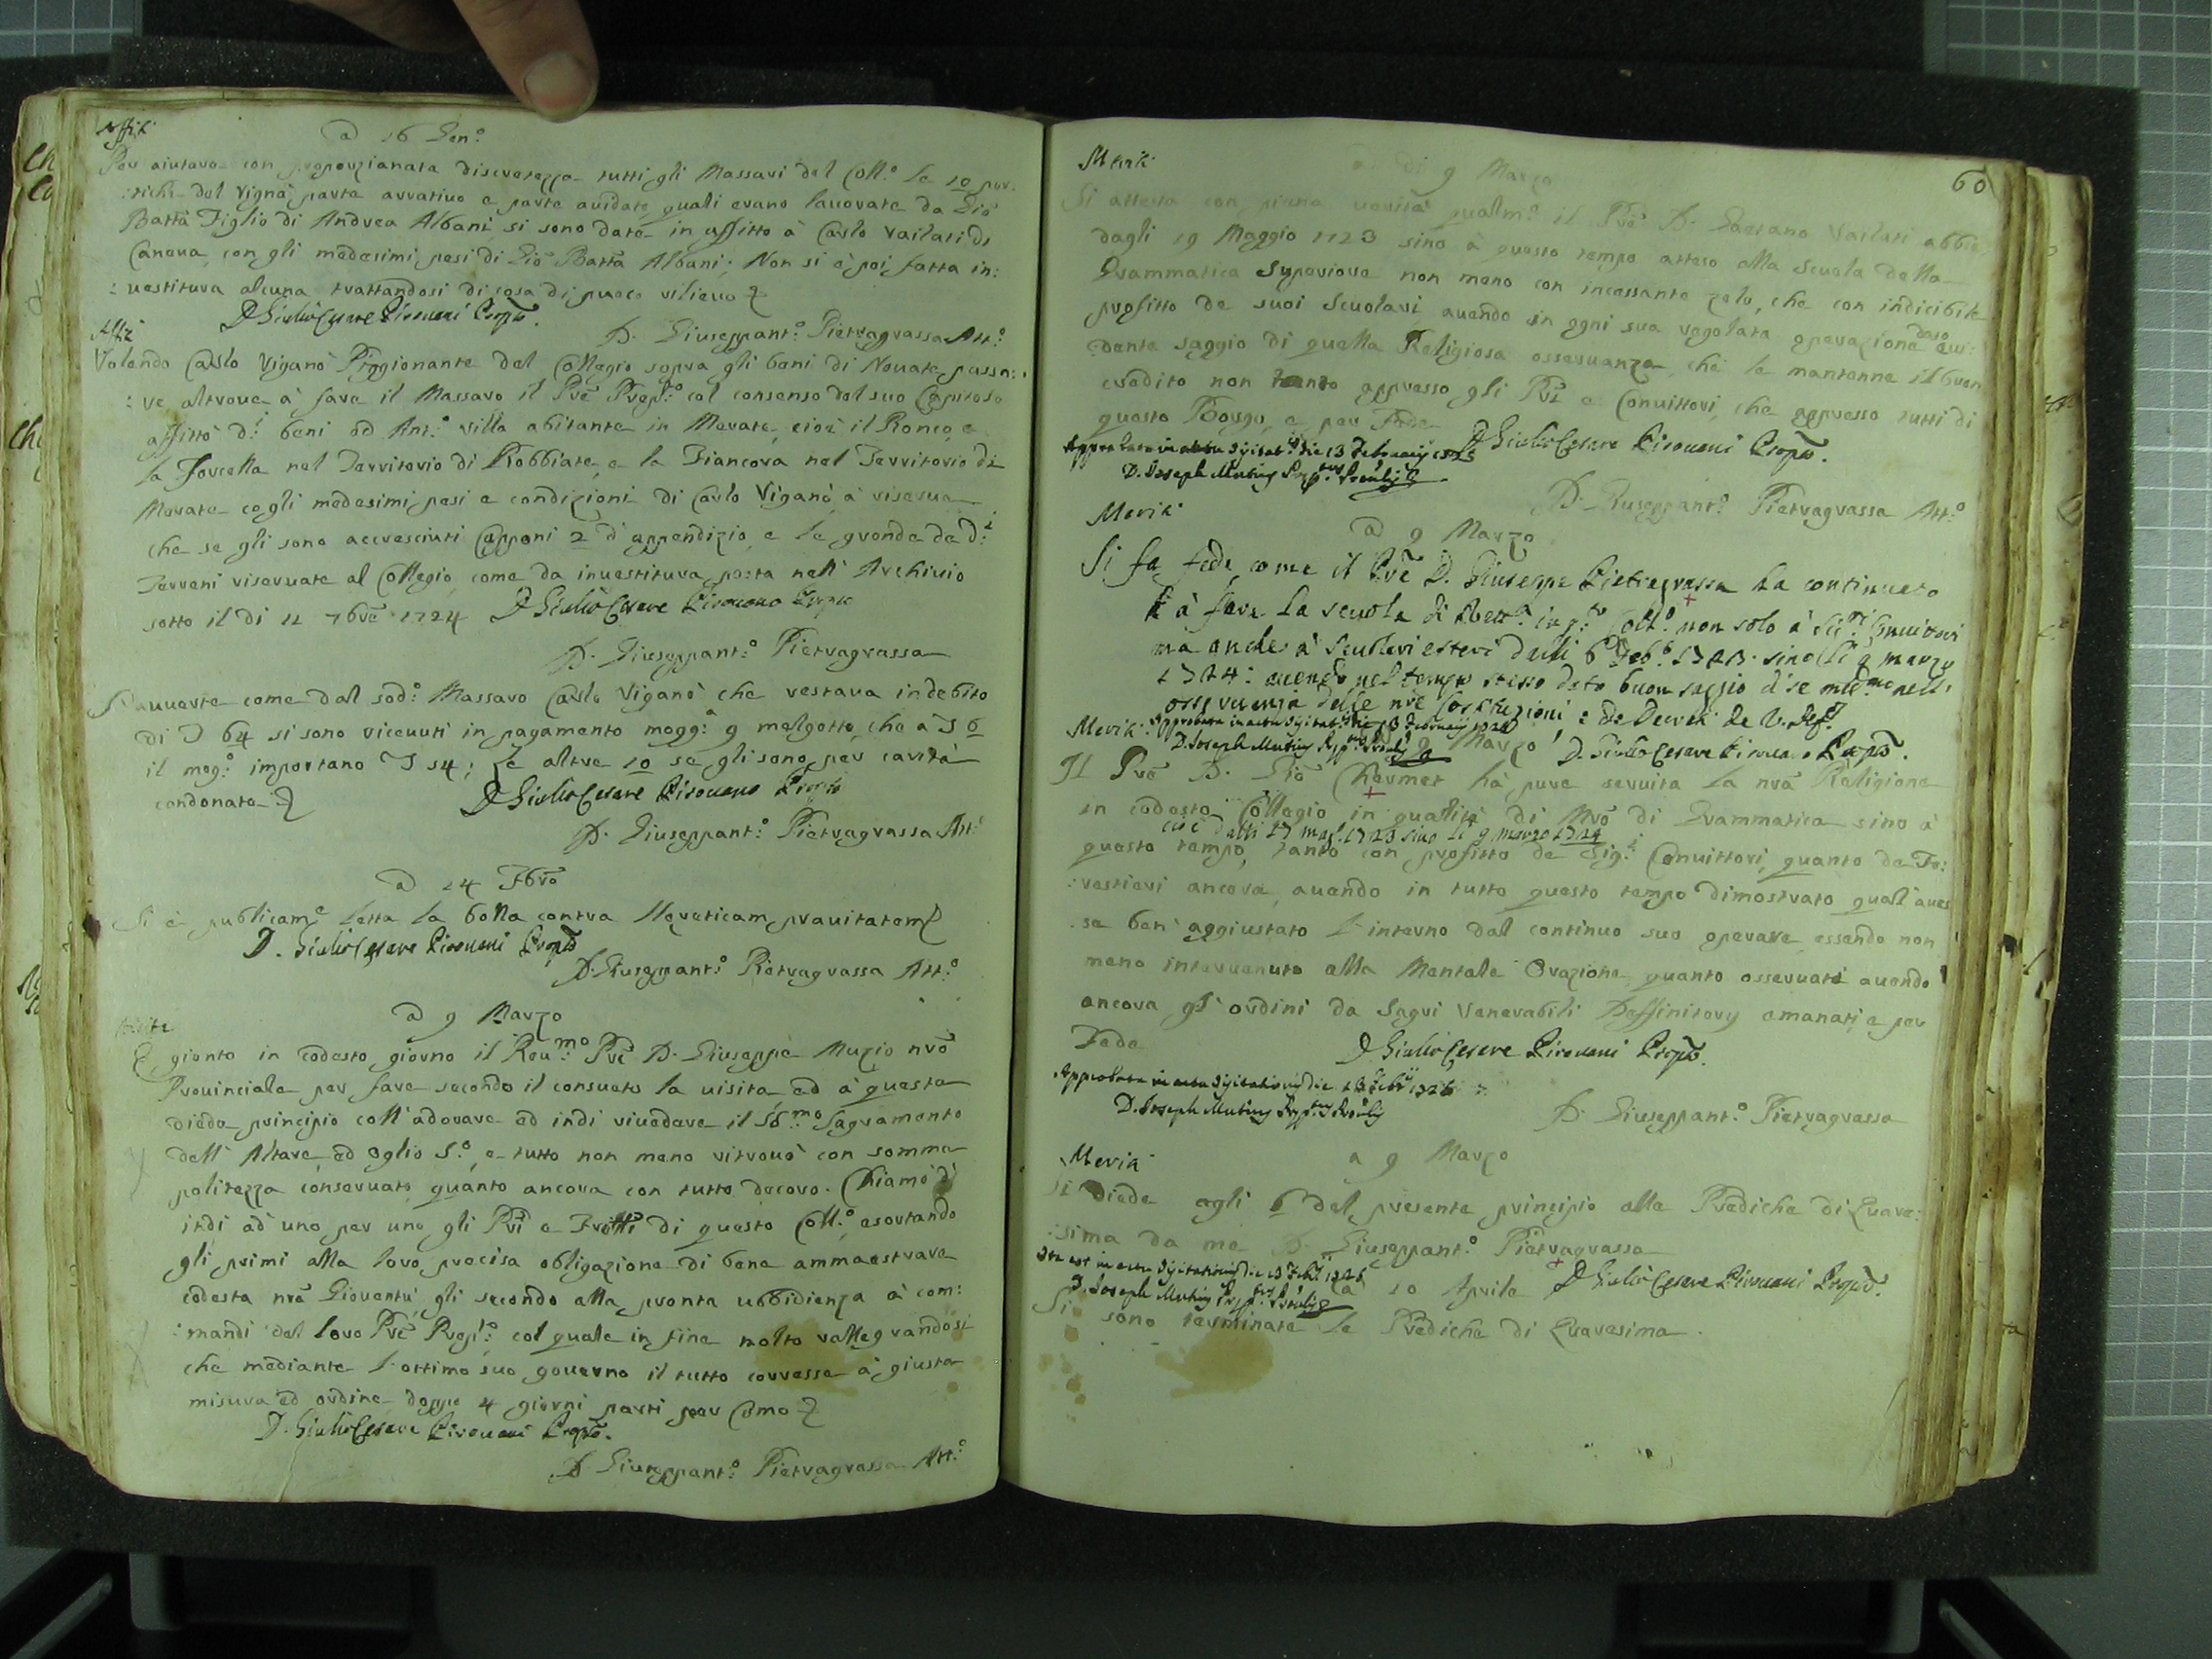 Affitti
a 16 Gen.o
Per aiutare con proporzionata discretezza tutti gli Massari del Coll.o le 10 per:
:tiche del Vignà parte arrativo e parte auidate quali erano lauorate da Gio
Batta Figlio di Andrea Albani si sono date in affitto à Carlo Vailati di
Canoua con gli medesimi pesi di Gio Batta Albani; Non si è poi fatta in:
:uestitura alcuna trattandosi di cosa di puoco rilieuo
D Giulio Cesare Pirouani Prep.to
D. Giuseppant.o Pietragrassa Att.o
Affi
Volendo Carlo Viganò Piggionante del Collegio sopra gli beni di Nouate passa:
:re altroue à fare il Massaro il Pre Prep.to col consenso del suo Capitolo
affittò d.i beni ad Ant.o Villa abitante in Merate, cioè il Ronco, e
la Forcella nel Territorio di Robbiate, e la Fiancora nel Territorio di
Merate cogli medesimi pesi e condizioni di Carlo Viganò à riserua
che se gli sono accresciuti Capponi 2 d'appendizio e le gronde de d.i
Terreni riseruate al Collegio come da inuestitura posta nell' Archiuio
sotto il di 11 7bre 1724 D Giulio Cesare Pirouano Prep.to
D. Giuseppant.o Pietragrassa
S'auuerte come dal sod.o Massaro Carlo Viganò che restaua in debito
di 64 si sono riceuuti in pagamento mogg.a 9 melgotto, che à 6
il mog.o importano 54; Le altre 10 se gli sono per carità
condonate
D Giulio Cesare Pirouano Prep.to
D. Giuseppant.o Pietragrassa Att.o
a 24 Fbro
Si è publicam.e letta la bolla contra Hereticam prauitatem
D. Giulio Cesare Pirouani Prep.to
D. Giuseppant.o Pietragrassa Att.o
a 9 Marzo
Visite
E gionto in codesto giorno il Reu.mo Pre D. Giuseppe Muzio nro
Prouinciale per fare secondo il consueto la uisita ed à questa
diede principio coll' adorare ed indi riuedere il SS.mo Sagramento
dell' Altare, ed Oglio S.o, e tutto non meno ritrouò con somma
politezza conseruato quanto ancora con tutto decoro. Chiamò d'
indi ad uno per uno gli Pri e Frlli di questo Coll.o esortando
gli primi alla loro precisa obligazione di bene ammaestrare
codesta nra Giouentù, gli secondo alla pronta ubbidienza à com:
:mandi del loro Pre Prep.to: col quale in fine molto rallegrandosi
che mediante l'ottimo suo gouerno il tutto corresse à giusta
misura ed ordine doppo 4 giorni partì per Como
D. Giulio Cesare Pirouani Prep.to
D. Giuseppant.o Pietragrassa Att.o
60
Meriti
a di 9 Marzo
Si attesta con piena uerità qualm.e il Pre D. Gaetano Vailati abbia
dagli 19 Maggio 1723 sino à questo tempo atteso alla Scuola della
Grammatica Superiore non meno con incessante zelo, che con indicibile
profitto de suoi Scuolari auendo in ogni sua regolata operazione dato eui:
:dente saggio di quella Religiosa osseruanza, che le mantenne il buon
credito non tanto appresso gli Pri e Conuittori, che appresso tutti di
questo Borgo, e per Fede
Approbata in actu visitat.is die 13 Februarij 1725 D Giulio Cesare Pirouani Prep.to
D. Joseph Mutius Prep.tus Prou.lis
D. Giuseppant.o Pietragrassa Att.o
Meriti
a 9 Marzo
Si fa fede come il Pre D. Giuseppe Pietragrassa ha continuato
à fare la scuola di Rett.a in q.to Coll.o non solo à Sig.ri Conuittori
mà anche à Scuolari esteri dalli 6 Feb.o 1723 sino li 9 marzo
1724: auendo nel tempo stesso dato buon saggio di se med.mo nell'
osseruanza delle nre Costituzioni e de Decreti de V. Def.i
Meriti: Approbata in actu visitat.is die 13 Februarij 1725
D. Joseph Mutius Prep.tus Prou.lis 9 Marzo D. Giulio Cesare Pirouano Prep.to.
Il Pre D. Gio Chermet hà pure seruita la nra Religione
in codesto Collegio in qualità di Mro di Grammatica sino à
cioè dalli 17 mag.o 1723 sino li 9 marzo 1724
questo tempo, tanto con profitto de Sig.i Conuittori, quanto de Fo:
:restieri ancora, auendo in tutto questo tempo dimostrato qual' aues
:se ben' aggiustato l'interno dal continuo suo operare essendo non
meno interuenuto alla Mentale Orazione, quanto osseruati auendo
ancora gl' ordini da Sagri Venerabili Deffinitorij emanati, e per
Fede D Giulio Cesare Pirouani Prep.to.
Approbata in actu visitationis die 13 Feb.ij 1725
D. Joseph Mutius Prep.tus Prou.lis
D. Giuseppant.o Pietragrassa
Meriti
a 9 Marzo
Si diede agli 6 del presente principio alle Prediche di Quare:
:sima da me D. Giuseppant.o Pietragrassa
Ita est in actu visitationis die 13 Feb.ij 1725
D. Joseph Mutius Prep.tus Prou.lis a 10 Aprile D Giulio Cesare Pirouani Prep.to.
Si sono terminate le Prediche di Quaresima.